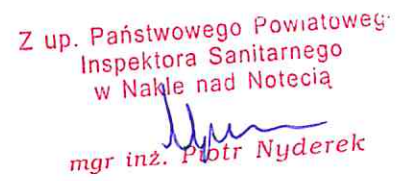 Z up. Państwowego Powiatoweg
Inspektora Sanitarnego
w Nakle nad Notecią
mgr inż. Piotr Nyderek